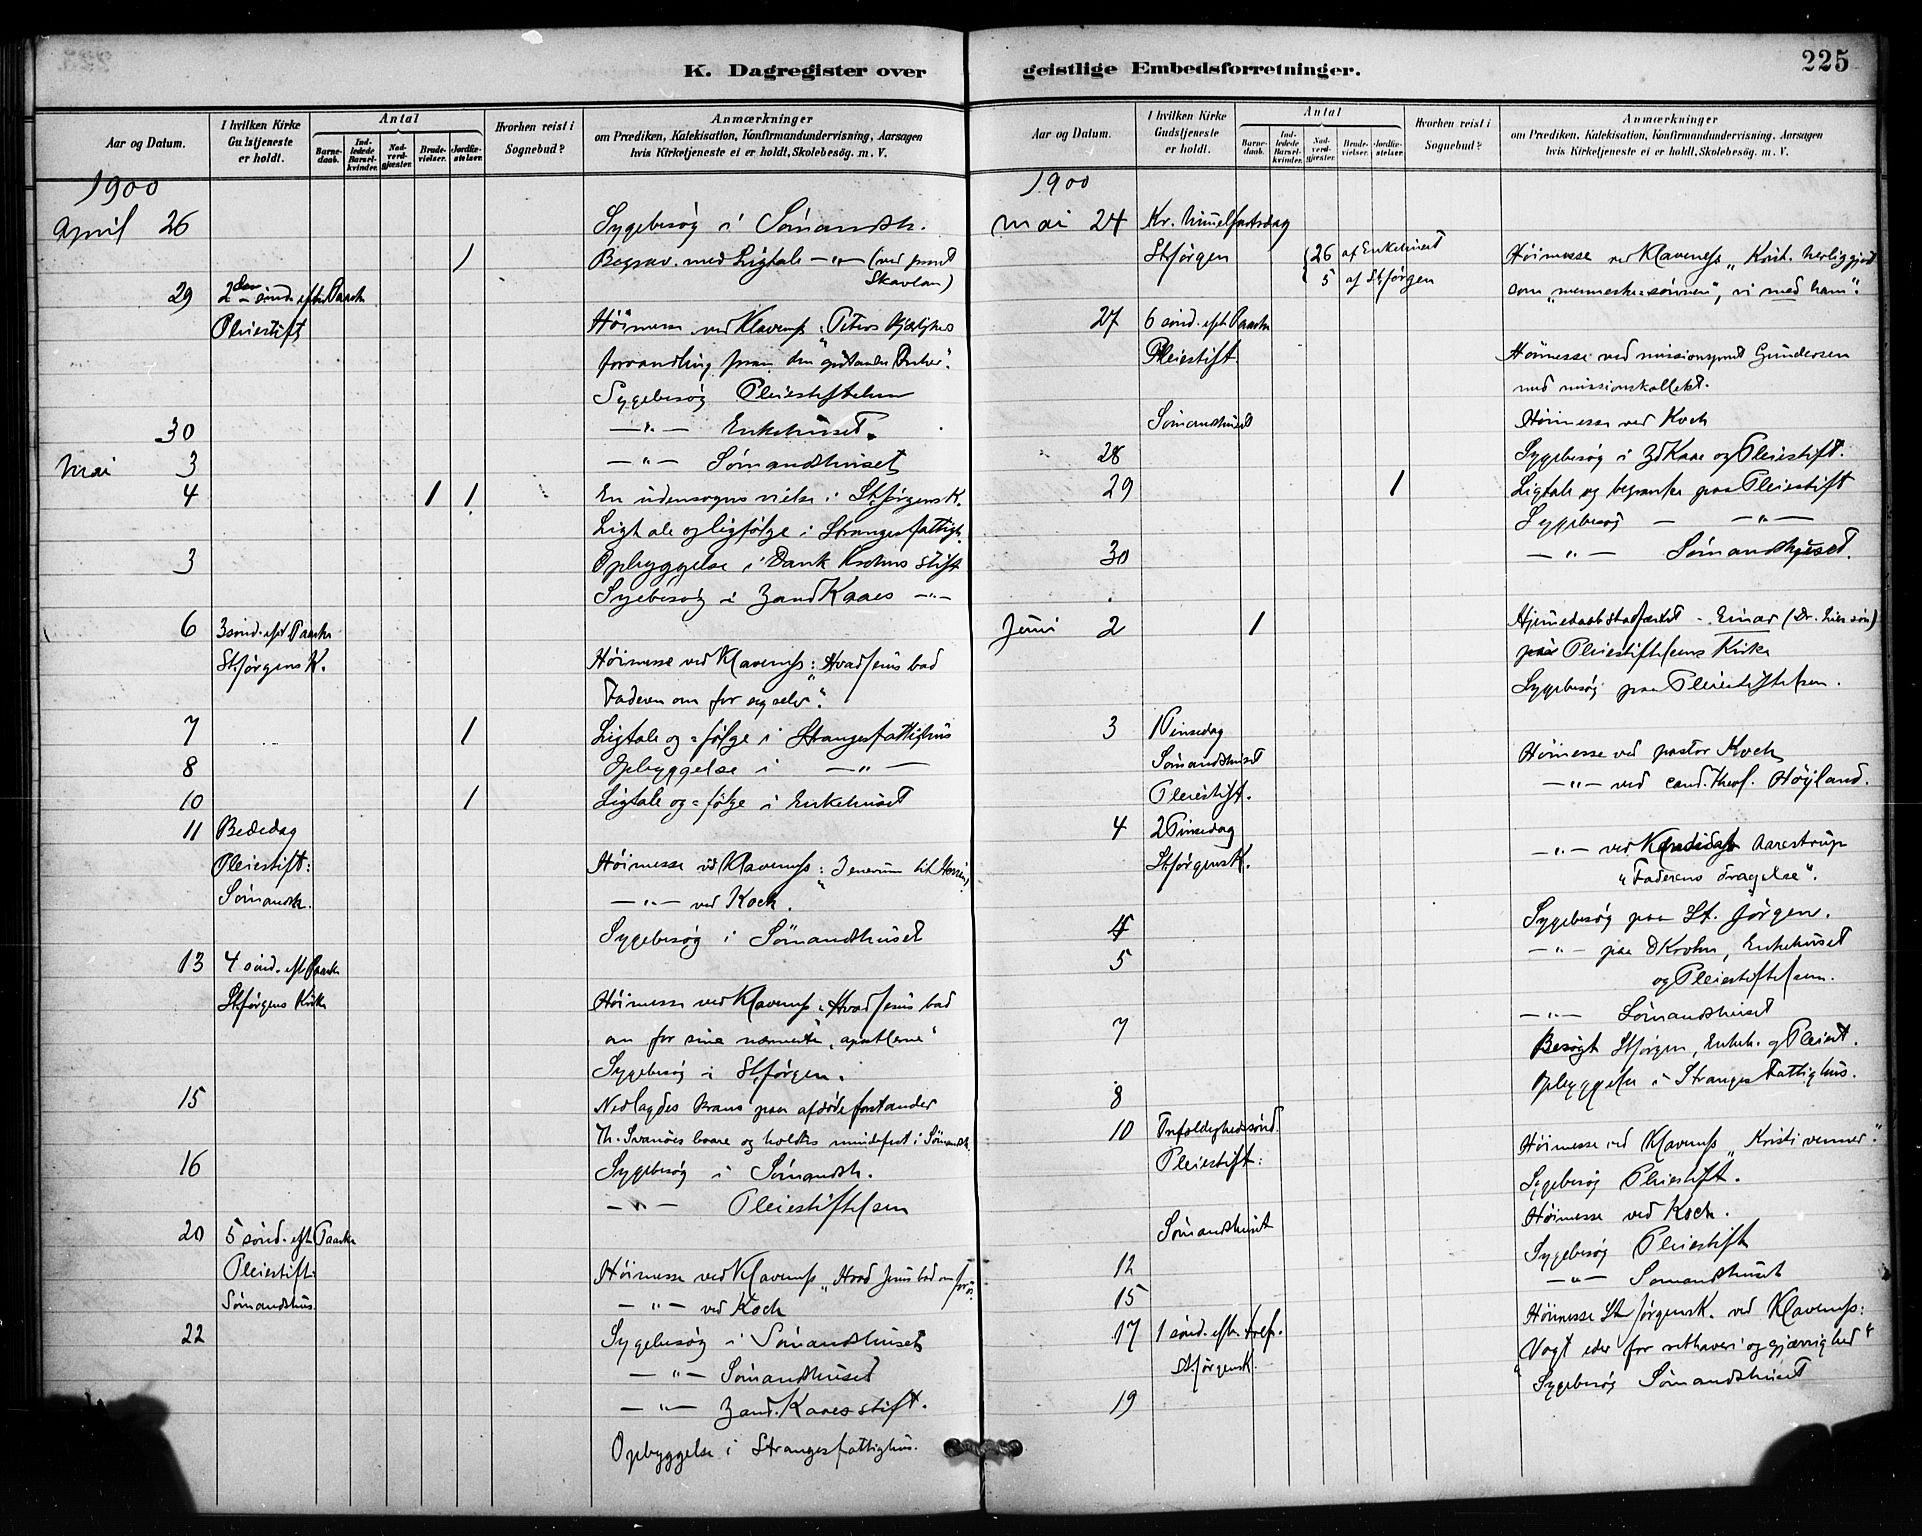 225
K. Dagregister over
geistlige Embedsforretninger.
Aar og Datum.
I hvilken Kirke Gudstjeneste er holdt.
Antal
Barnedaab.
Indledede Barselkvinder.
Nadverdgjester.
Brudevielser.
Jordfæstelser.
Hvorhen reist i Sognebud?
Anmærkninger
om Prædiken, Katekisation, Konfirmandundervisning, Aarsagen
hvis Kirketjeneste ei er holdt, Skolebesøg. m. V.
1900
April 26 Sygebesøg i Sømandsh.
1 Begrav. med Ligtale —"— (ved prost
Skavlan)
29 2den sønd. efter Paaske
Pleiestift Høimesse ved Klaveness „Peters kjærlighets
forvandling fra den
Sygebesøg Pleiestiftelsen
30 —"— Enkehuset.
Mai 3 —"— Sømandshuset
4 1 1 En udensogns vielse i St. Jørgens K.
Ligtale og ligfølge i Stranges fattigh.
3 Opbyggelse i Dank. Krohns Stift
Sygebesøg i Zand. Kaaes —"—
6 3 sønd. eft. Paaske
St. Jørgens K. Høimesse ved Klaveness: „Hvad Jesus bad
Faderen om for sig selv".
7 1 Ligtale og =følge i Stranges fattighus
8 Opbyggelse i —"—
10 1 Ligtale og =følge i Enkehuset
11 Bededag
Pleiestift: Høimesse ved Klaveness:
Sømandsh. —"— ved Koch.
Sygebesøg i Sømandshuset
13 4 sønd. eft. Paaske
St. Jørgens Kirke Høimesse ved Klaveness: „Hvad Jesus bad
om for sine nærmeste, apostlene"
Sygebesøg i St. Jørgen.
15 Nedlagdes krans paa afdøde forstander
Th. Svanöes baare og holdtes mindefest i Sømandsh.
16 Sygebesøg i Sømandsh.
—"— Pleiestiftelsen
20 5 sønd. eft. Paaske
Pleiestift. Høimesse ved Klaveness „Hvad Jesus bad om for
Sømandshus. —"— ved Koch
22 Sygebesøg i Sømandshuset
—"— Sømandshuset
—"— Zand. Kaaes stift.
Opbyggelse i Stranges fattighus.
Aar og Datum.
I hvilken Kirke Gudstjeneste er holdt.
Antal
Barnedaab.
Indledede Barselkvinder.
Nadverdgjester.
Brudevielser.
Jordfæstelser.
Hvorhen reist i Sognebud?
Anmærkninger
om Prædiken, Katekisation, Konfirmandundervisning, Aarsagen
hvis Kirketjeneste ei er holdt, Skolebesøg. m. V.
1900
Mai 24 Kr. himmelfartsdag
St. Jørgen 26 af Enkehuset Høimesse ved Klaveness „Krist. herliggjort
5 af St. Jørgen som „menneskesønnen", vi med ham".
27 6 sønd. eft. Paaske
Pleiestift. Høimesse ved missionsprest Gundersen
med missionskollekt.
Sømandshuset Høimesse ved Koch
28 Sygebesøg i Zd Kaae og Pleiestift.
29 1 Ligtale og begravelse paa Pleiestift
Sygebesøg — —"—
30 —"— Sømandshuset.
Juni 2 1 Hjemmedaab stadfæstet - Einar (Dr. Lies søn)
paa Pleiestiftelsens Kirke
Sygebesøg paa Pleiestiftelsen.
3 1 Pinsedag
Sømandshuset Høimesse ved pastor Koch
Pleiestift. —"— ved cand. theol. Höyland.
4 2 Pinsedag
St. Jørgens K. —"— ved Kandidat Aarestrup
„Faderens dragelse".
4 Sygebesøg paa St. Jørgen.
5 —"— paa D Krohn, Enkehuset
og Pleiestiftelsen.
7 —"— Sømandshuset
Besøgt St. Jørgen, Enkeh. og Pleiest.
8 Opbyggelse i Stranges Fattighus.
10 Trefoldighedssønd.
Pleiestift: Høimesse ved Klaveness „Kristi venner".
Sygebesøg Pleiestift.
Sømandshuset Høimesse ved Koch.
12 Sygebesøg Pleiestift
15 —"— Sømandshuset
17 1 sønd. eft. tref.
St. Jørgensk. Høimesse St. Jørgensk. ved Klaveness:
„Vogt eder for rethaveri og gjærrighed"
19 Sygebesøg Sømandshuset